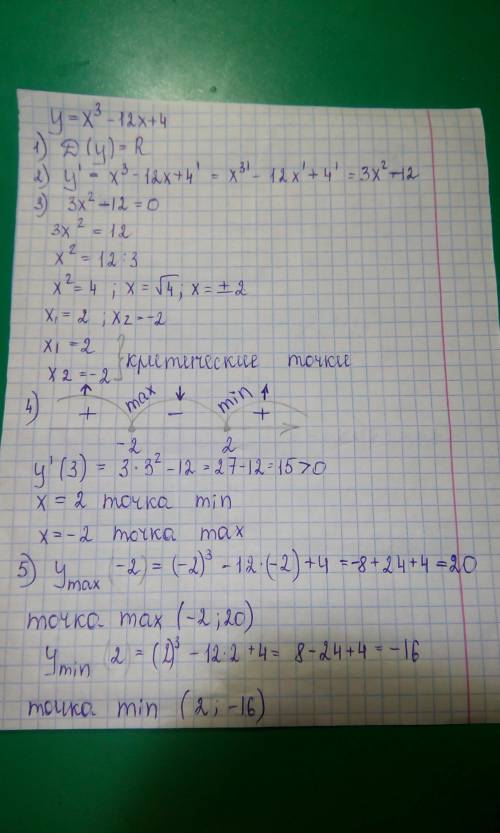 y = x³ - 12x + 4
1) D(y) = R
2) y' = x³ - 12x + 4' = x³' - 12x' + 4' = 3x² - 12
3) 3x² - 12 = 0
3x² = 12
x² = 12 : 3
x² = 4 ; x = √4 ; x = ± 2
x₁ = 2 ; x₂ = -2
x₁ = 2
x₂ = -2 } критические точки
4) ↑ + max ↓ - min ↑ +
-2 2
y'(3) = 3·3² - 12 = 27 - 12 = 15 > 0
x = 2 точка min
x = -2 точка max
5) y max (-2) = (-2)³ - 12·(-2) + 4 = -8 + 24 + 4 = 20
точка max (-2 ; 20)
y min (2) = (2)³ - 12·2 + 4 = 8 - 24 + 4 = -16
точка min (2 ; -16)